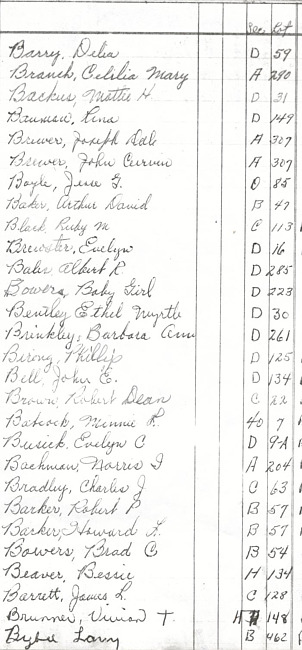 Sec. Lot
Barry, Delia D 59
Branch, Celilia Mary A 290
Backus, Mattie H D 31
Bauman, Rena D 149
Brewer, Joseph Dale A 307
Brewer, John Curvin A 307
Boyle, Jesse G. O 85
Baker, Arthur David B 47
Black, Ruby M C 113
Brewster, Evelyn D 16
Baler, Albert R D 285
Bowers, Baby Girl D 223
Bensley Ethel Myrtle D 30
Brinkley, Barbara Ann D 261
Birong, Phillip D 125
Bell, John E. D 134
Brown, Robert Dean C 22
Babcock, Minnie L. 40 7
Busick, Evelyn C D 9-A
Bachman, Norris I A 204
Bradley, Charles J C 63
Barker, Robert P B 57
Backer, Howard L. B 57
Bowers, Brad C B 54
Beaver, Bessie H 134
Barrett, James L. C 128
Brunner, Vivian T. H 148
Bybee Larry B 462